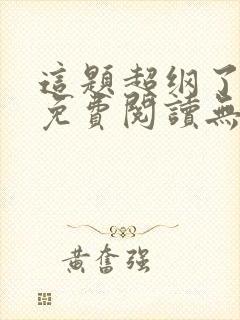 這題超纲了
免費閱讀無
黃奮強